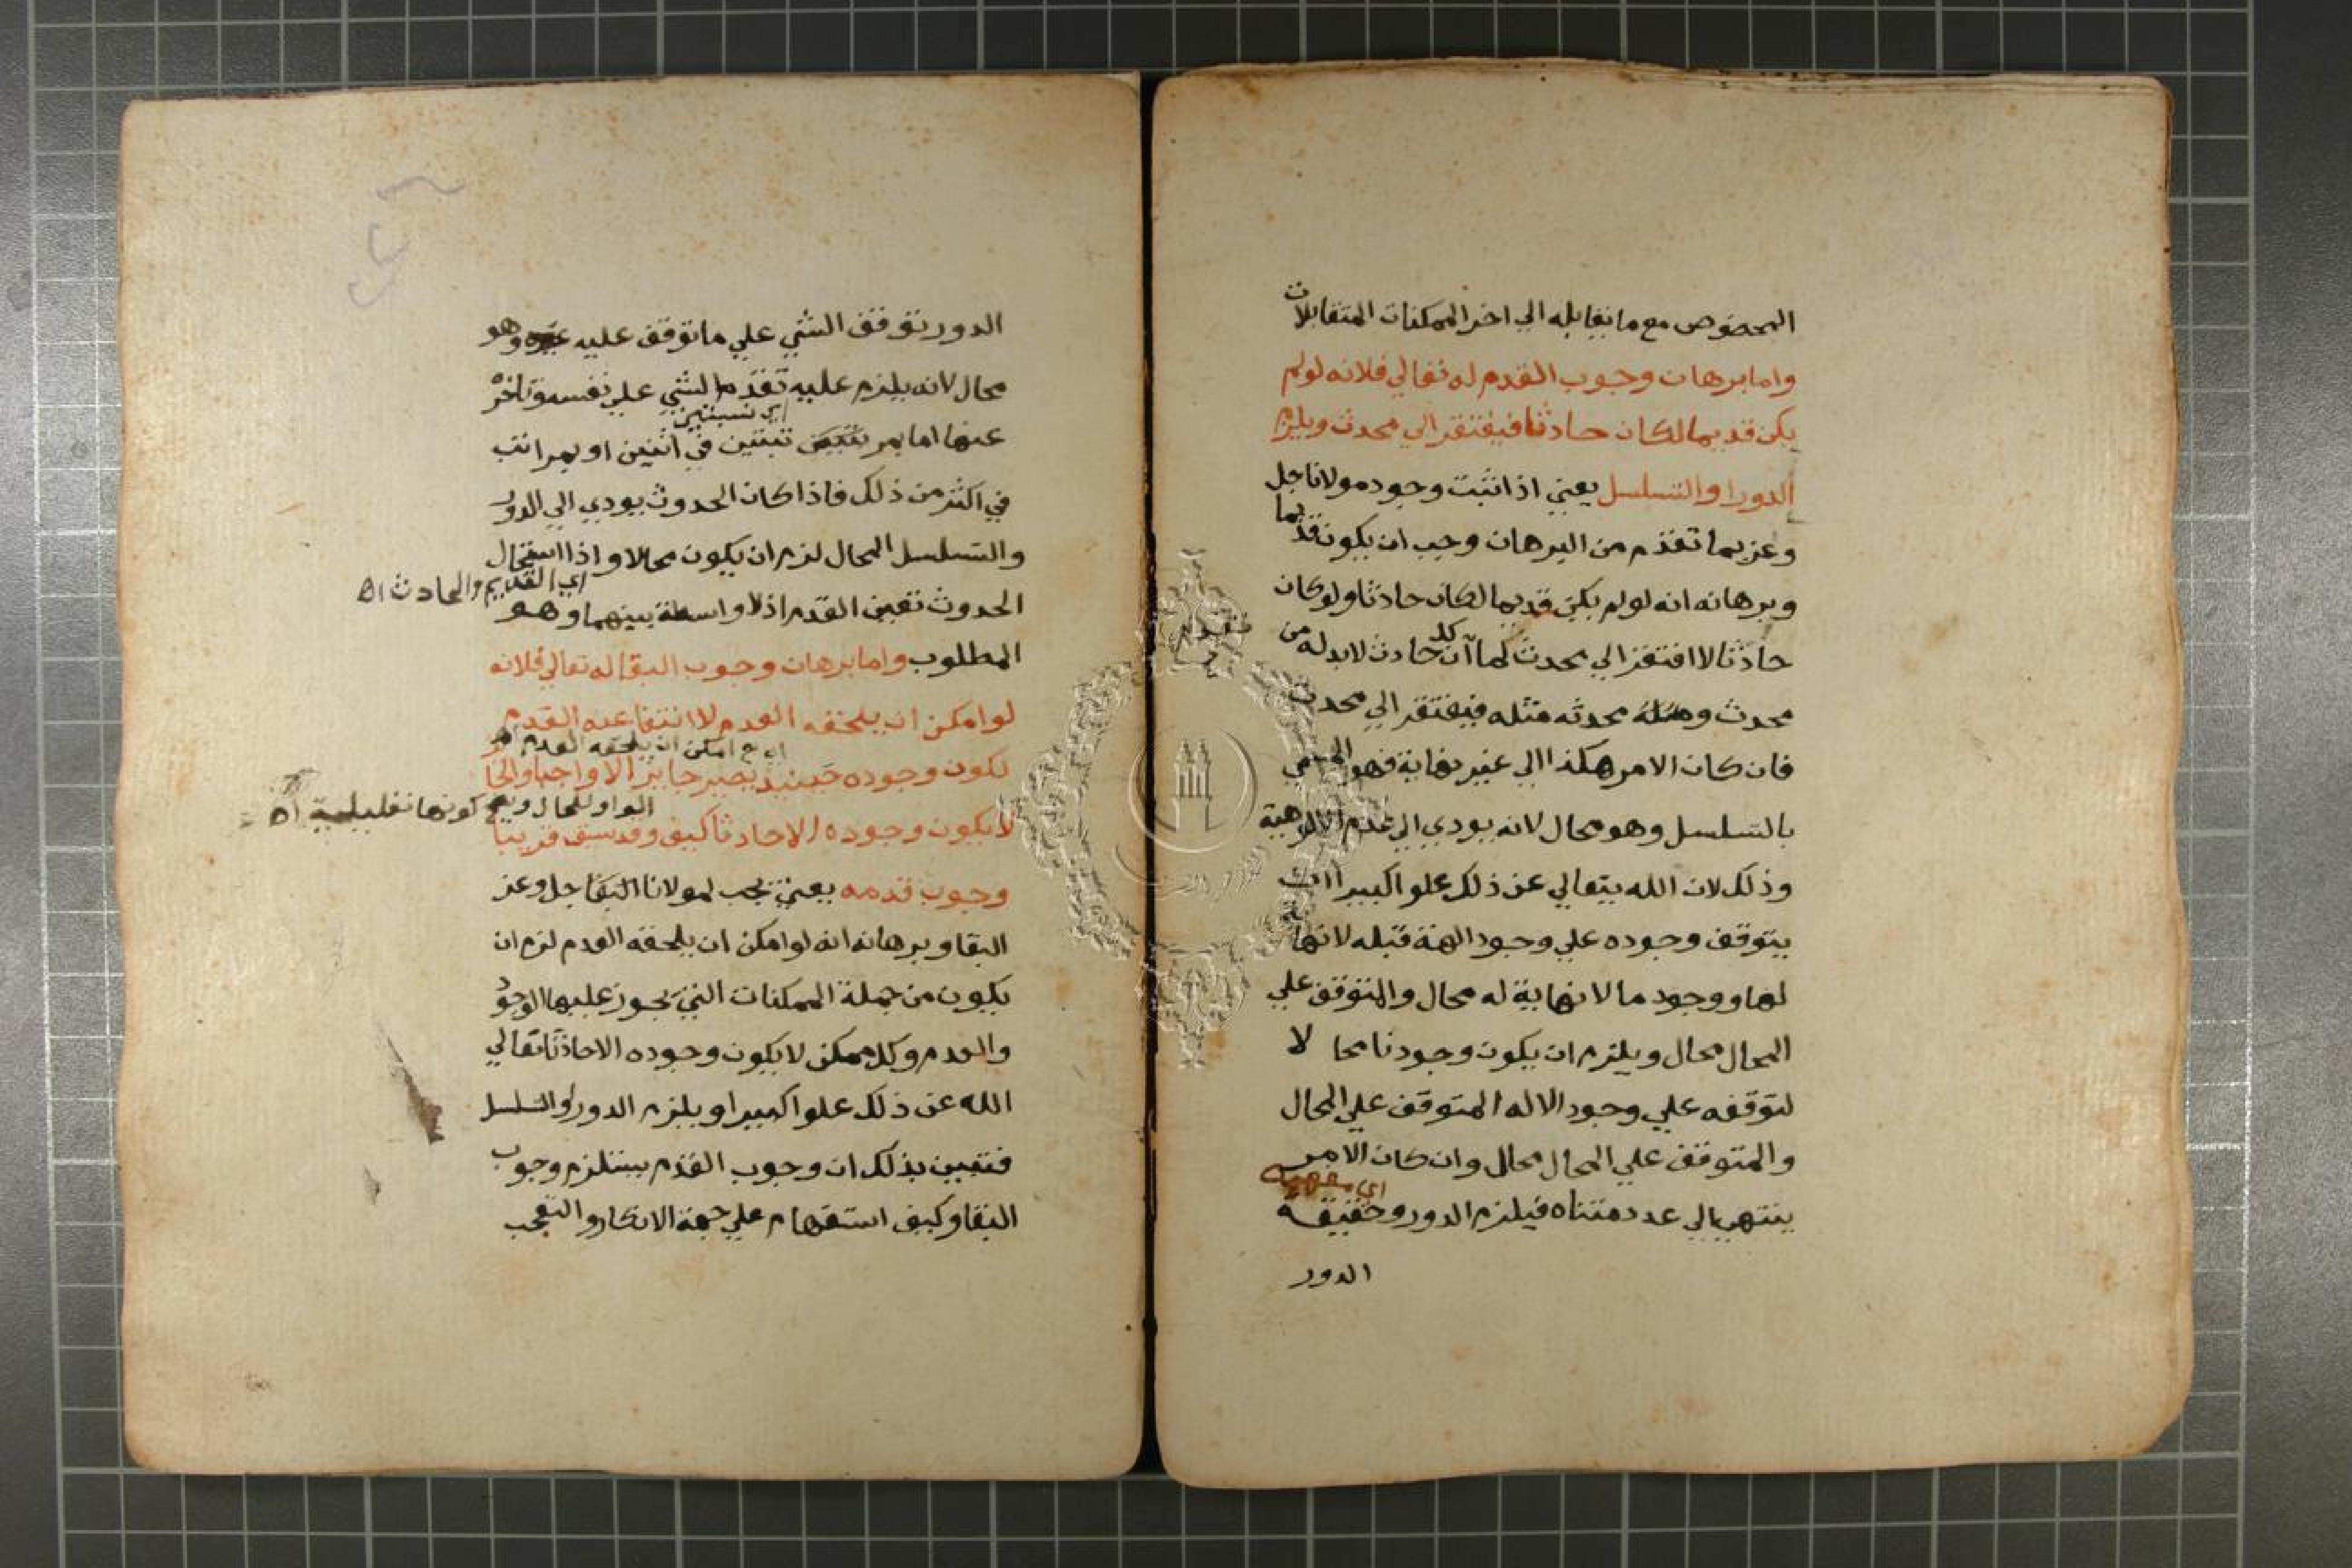 المخصوص مع ما يقابله الي اخر الممكنات المتقابلات
واما برهان وجوب القدم له تعالي فلانه لو لم
يكن قديما لكان حادثا فيفتقر الي محدث ويلزم
الدور او التسلسل يعني اذا ثبت وجود مولانا جل
وعز بما تقدم من البرهان وجب ان يكون قديما
وبرهانه انه لو لم يكن قديما لكان حادثا ولو كان
حادثا لا افتقر الي محدث كما ان كل حادث لابد له من
محدث محدثه مثله فيفتقر الي محدث
فان كان الامر هكذا الي غير نهاية فهو
بالتسلسل وهو محال لانه يودي الي عدم الالوهية
وذلك لان الله يتعالي عن ذلك علوا كبيرا
يتوقف وجوده علي وجود الهة قبله لا نهاية
لها ووجود ما لا نهاية له محال والمتوقف علي
المحال محال ويلزم ان يكون وجودنا محا لا
لتوقفه علي وجود الاله المتوقف علي المحال
والمتوقف علي المحال محال وان كان الامر
ينتهي الي عدد متناه فيلزم الدور وحقيقة
الدور
الدور توقف الشئي علي ما توقف عليه وهو
محال لانه يلزم عليه تقدم الشئي علي نفسه وتاخره
اي نسبتين
عنها اما بمرتبتين في اثنين او بمراتب
في اكثر من ذلك فاذا كان الحدوث يودي الي الدور
والتسلسل المحال لزم ان يكون محالا واذا استحال
اي القديم والحادث اه
الحدوث تعين القدم اذ لا واسطة بينهما وهو
المطلوب واما برهان وجوب البقا له تعالي فلانه
لو امكن ان يلحقه العدم لا انتفا عنه القدم
اي ح امكن ان يلحقه العدم
لكون وجوده حينيذ يصير جايزا لا واجبا والجا
الواو للحال ويصح كونها تعليلية اه
لا يكون وجوده الا حادثا كيف وقد سبق قريبا
وجوب قدمه يعني يجب لمولانا البقا جل وعز
البقا وبرهانه انه لو امكن ان يلحقه العدم لزم ان
يكون من جملة الممكنات التي يجوز عليها الوجود
والعدم وكل ممكن لا يكون وجوده الا حادثا تعالي
الله عن ذلك علوا كبيرا ويلزم الدور او التسلسل
فتبين بذلك ان وجوب القدم يستلزم وجوب
البقا وكيف استفهام علي جهة الانكار والتعجب